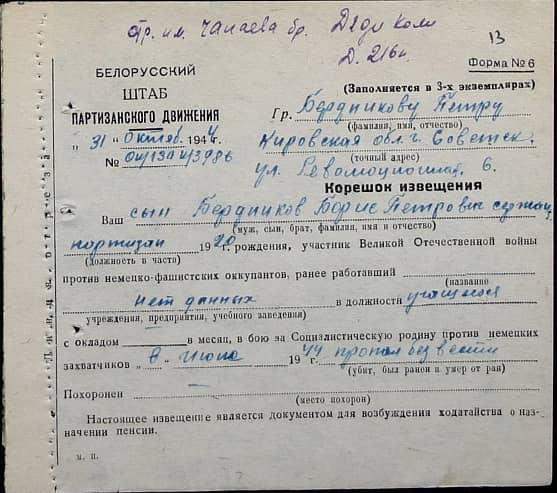 отр. им. Чапаева бр. Дяди Коли
Д. 216к
13
Форма № 6
БЕЛОРУССКИЙ
ШТАБ
ПАРТИЗАНСКОГО ДВИЖЕНИЯ
„31" октяб. 1944 г.
№
(Заполняется в 3-х экземплярах)
Гр. Бердникову Петру
(фамилия, имя, отчество)
Кировская обл. г. Советск.
(точный адрес)
ул. 6.
Корешок извещения
Ваш сын Бердников Борис Петрович
(муж, сын, брат, фамилия, имя и отчество)
партизан 1920 г. рождения, участник Великой Отечественной войны
(должность в части)
против немецко-фашистских оккупантов, ранее работавший
(название
нет данных в должности учащегося
учреждения, предприятия, учебного заведения)
с окладом в месяц, в бою за Социалистическую родину против немецких
захватчиков „ в июне 1944 г. пропал без вести
(убит, был ранен и умер от ран)
Похоронен —
(место похорон)
Настоящее извещение является документом для возбуждения ходатайства о наз-
начении пенсии.
м. п.